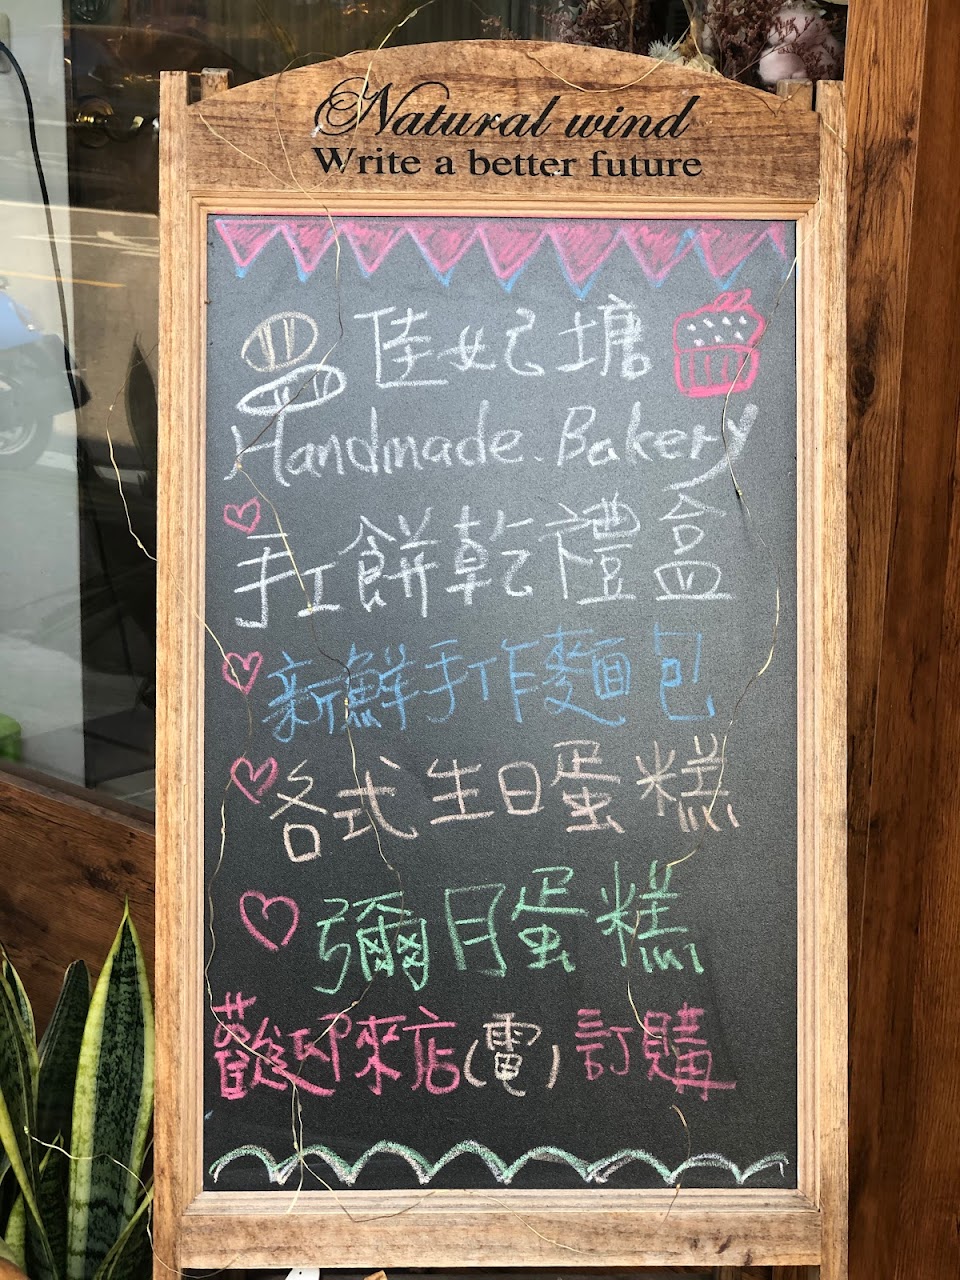 Natural wind
Write a better future
佳妃塘
Handmade. Bakery
手工餅乾禮盒
新鮮手作麵包
各式生日蛋糕
彌月蛋糕
歡迎來店(電)訂購